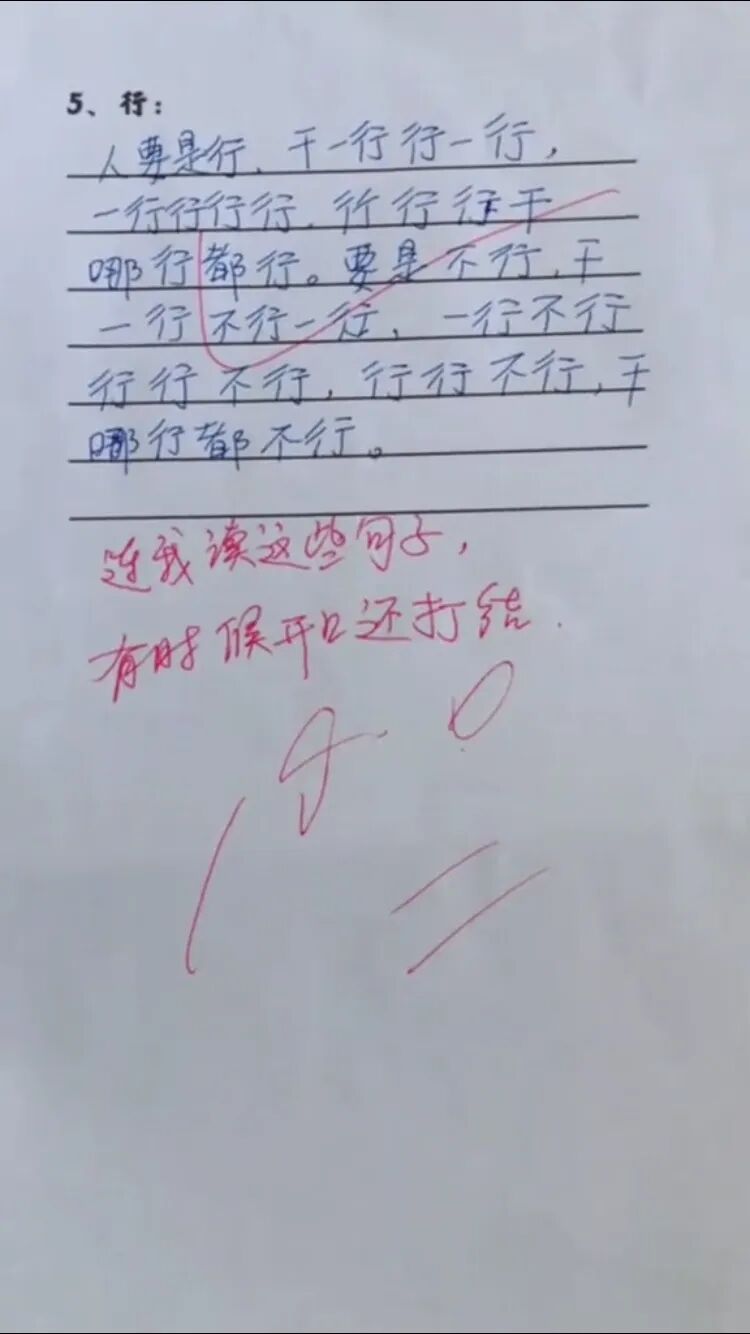 5、行：
人要是行、干一行行一行，
一行行行行，行行行干
哪行都行。要是不行，干
一行不行一行，一行不行
行行不行，行行不行，干
哪行都不行。
连我读这些句子，
有时候开口还打结.